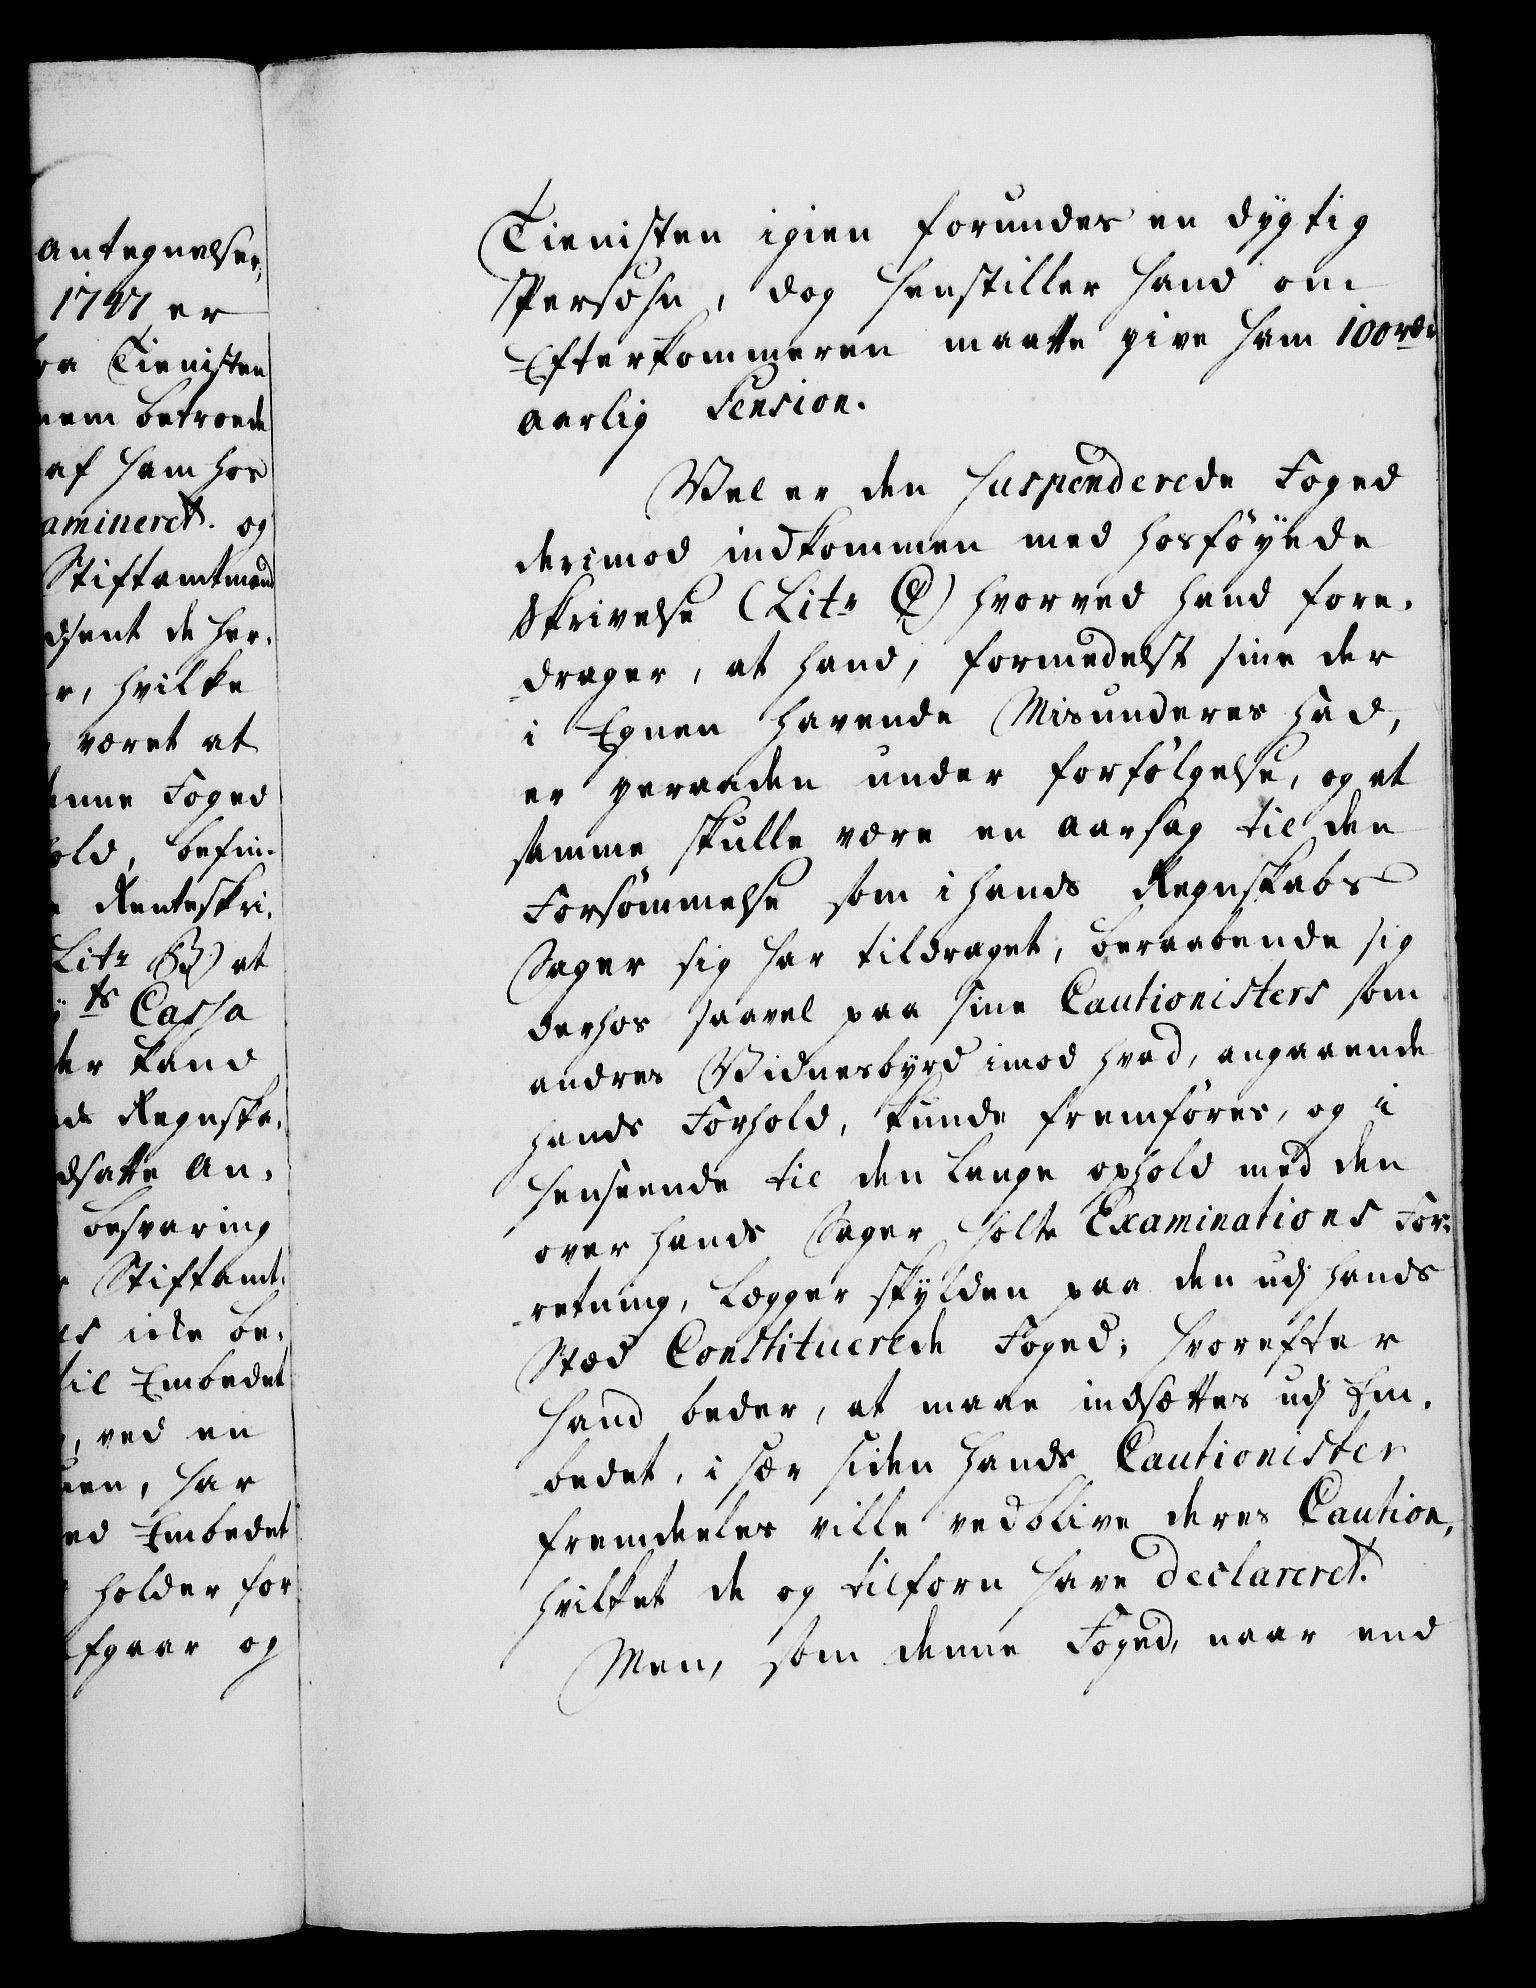 Antegnelser,
1747 er
fra Tienisten
nem betroede
af ham hos
amineret. og
Stiftamtmand
dsent de her-
r, hvilke
været at
denne Foged
hold, befin-
e Renteskri-
Litr B) at
ts Cassa
der kand
ds Regnska-
dsatte An-
besvaring
r Stiftamt-
es icke be-
til Embedet
, ved en
uen, har
ed Embedet
holder for
fgaar og
Tienisten igien forundes en dygtig
Persohn, dog henstiller hand om
Efterkommeren maatte give ham 100 rdr
aarlig Pension.
Vel er den Suspenderede Foged
derimod indkommen med hosföyede
Skrivelse (Litr C) hvorved hand fore-
drager, at hand, formedelst sine der
i Egnen havende Misunderes had,
er geraaden under forfölgelse, og at
samme skulle være en aarsag til den
Forsömmelse som i hands Regnskabs
Sager sig har tildraget, beraabende sig
derhos saavel paa sine Cautionisters som
andres Vidnesbyrd imod hvad, angaaende
hands Forhold, kunde fremföres, og i
henseende til den lange ophold med den
over hands Sager holte Examinations For-
retning, lægger skylden paa den udj hands
Stæd Constituerede Foged; hvorefter
hand beder, at maae indsættes udj Em-
bedet, i sær siden hands Cautionister
fremdeeles ville vedblive deres Caution,
hvilket de og tilforn have declareret.
Men, som denne Foged, naar end